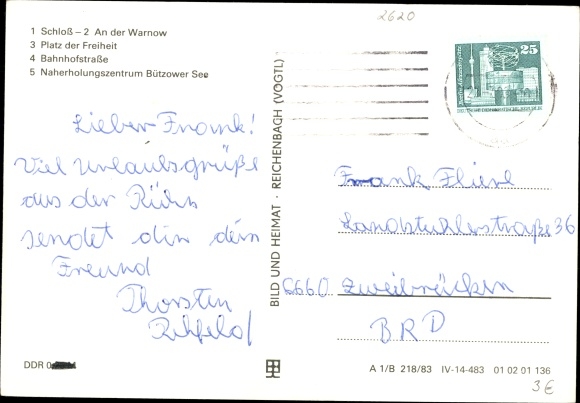 2620
1 Schloß – 2 An der Warnow
3 Platz der Freiheit
4 Bahnhofstraße
5 Naherholungszentrum Bützower See
25
Lieber Frank!
Viel Urlaubsgrüße
aus der
sendet dir dein
Freund
Thorsten
BILD UND HEIMAT · REICHENBACH (VOGTL)
Frank
Landstuhlerstraße 36
6660 Zweibrücken
BRD
DDR
A 1/B 218/83 IV-14-483 01 02 01 136
3€